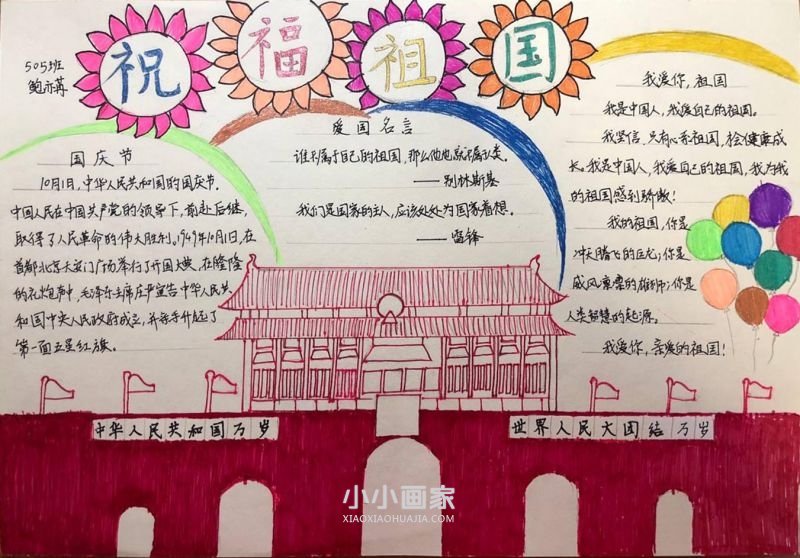 祝福祖国
505班
鲍亦苒
国庆节
10月1日,中华人民共和国的国庆节.
中国人民在中国共产党的领导下,前赴后继,
取得了人民革命的伟大胜利。1949年10月1日,在
首都北京天安门广场举行了开国大典,在隆隆
的礼炮声中,毛泽东主席庄严宣告中华人民共
和国中央人民政府成立,并亲手升起了
第一面五星红旗。
爱国名言
谁不属于自己的祖国,那么他也就不属人类。
——别林斯基
我们是国家的主人,应该处处为国家着想.
——雷锋
我爱你,祖国
我是中国人,我爱自己的祖国。
我坚信,只有心系祖国,才会健康成
长。我是中国人,我爱自己的祖国,我为我
的祖国感到骄傲!
我的祖国,你是
冲天腾飞的巨龙;你是
威风凛凛的雄狮;你是
人类智慧的起源。
我爱你,亲爱的祖国!
中华人民共和国万岁
世界人民大团结万岁
小小画家
XIAOXIAOHUAJIA.COM